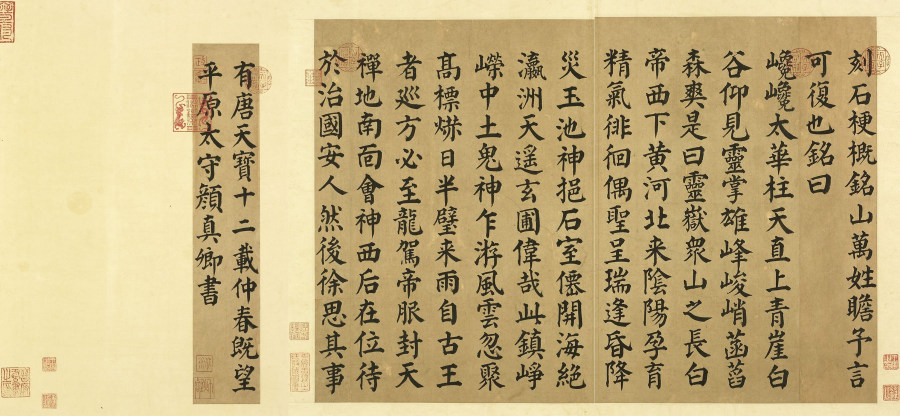 刻石梗概銘山萬姓瞻予言
可復也銘曰
巉巉太華柱天直上青崖白
谷仰見靈掌雄峰峻峭菡萏
森爽是曰靈嶽眾山之長白
帝西下黄河北来陰陽孕育
精氣徘徊偶聖呈瑞逢昏降
災玉池神挹石室僊開海絕
瀛洲天遥玄圃偉哉此鎮崢
嶸中土鬼神乍游風雲忽聚
髙標爀日半壁来雨自古王
者廵方必至龍駕帝服封天
禪地南面會神西后在位待
於治國安人然後徐思其事
有唐天寶十二載仲春既望
平原太守顔真卿書